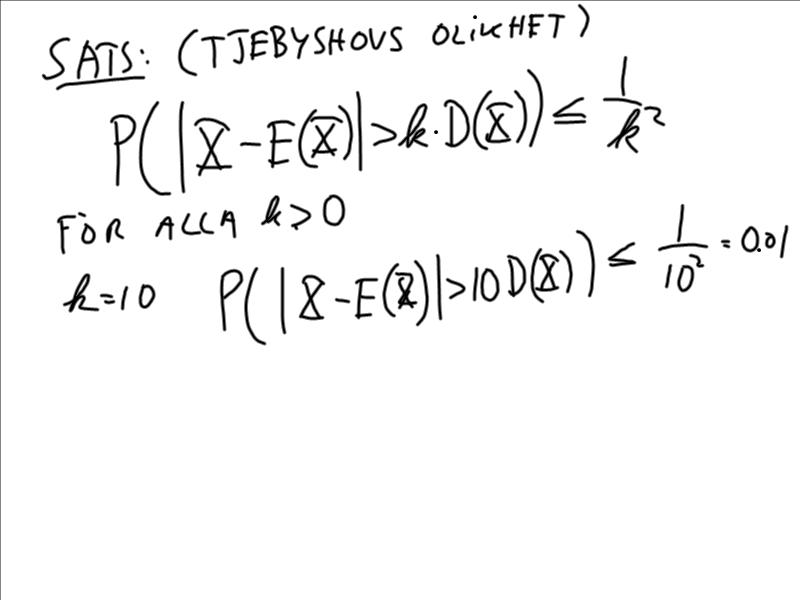 SATS: (TJEBYSHOVS OLIKHET)
P(|X-E(X)|>k·D(X))≤1/k²
FÖR ALLA k>0
k=10 P(|X-E(X)|>10D(X))≤1/10²=0.01